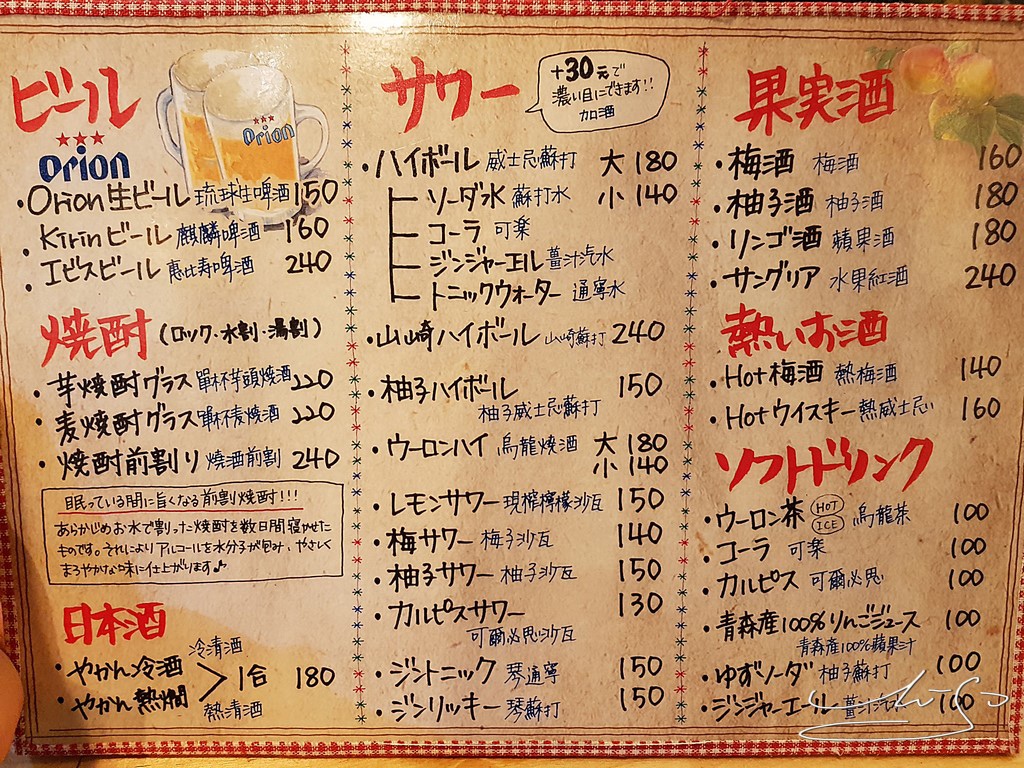 ビール
Orion
Orion
Orion生ビール 琉球生啤酒 150
Kirinビール 麒麟啤酒 160
エビスビール 恵比寿啤酒 240
焼酎 (ロック・水割・湯割)
芋焼酎グラス 單杯芋頭燒酒 220
麦焼酎グラス 單杯麦燒酒 220
焼酎前割り 燒酒前割 240
眠っている間に旨くなる前割焼酎!!!
あらかじめお水で割った焼酎を数日間寝かせた
ものです。それによりアルコールを水分子が包み、やさしく
まろやかな味に仕上がります♪
日本酒
やかん冷酒 冷清酒
やかん熱燗 熱清酒
1合 180
サワー
+30元で
濃い目にできます!!
加酒
・ハイボール 威士忌蘇打 大 180
ソーダ水 蘇打水 小 140
コーラ 可楽
ジンジャーエル 薑汁汽水
トニックウォーター 通寧水
・山崎ハイボール 山崎蘇打 240
・柚子ハイボール 150
柚子威士忌蘇打
・ウーロンハイ 烏龍燒酒 大 180
小 140
・レモンサワー 現榨檸檬沙瓦 150
・梅サワー 梅子沙瓦 140
・柚子サワー 柚子沙瓦 150
・カルピスサワー 130
可爾必思沙瓦
・ジントニック 琴通寧 150
・ジンリッキー 琴蘇打 150
果実酒
・梅酒 梅酒 160
・柚子酒 柚子酒 180
・リンゴ酒 蘋果酒 180
・サングリア 水果紅酒 240
熱いお酒
・Hot梅酒 熱梅酒 140
・Hotウイスキー 熱威士忌 160
ソフトドリンク
・ウーロン茶 HOT ICE 烏龍茶 100
・コーラ 可楽 100
・カルピス 可爾必思 100
・青森産100%りんごジュース 100
青森産100%蘋果汁
・ゆずソーダ 柚子蘇打 100
・ジンジャーエール 薑汁汽水 100